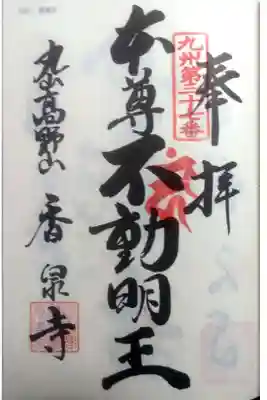 奉拝
九州第三十七番
本尊不動明王
丸山高野山 香泉寺